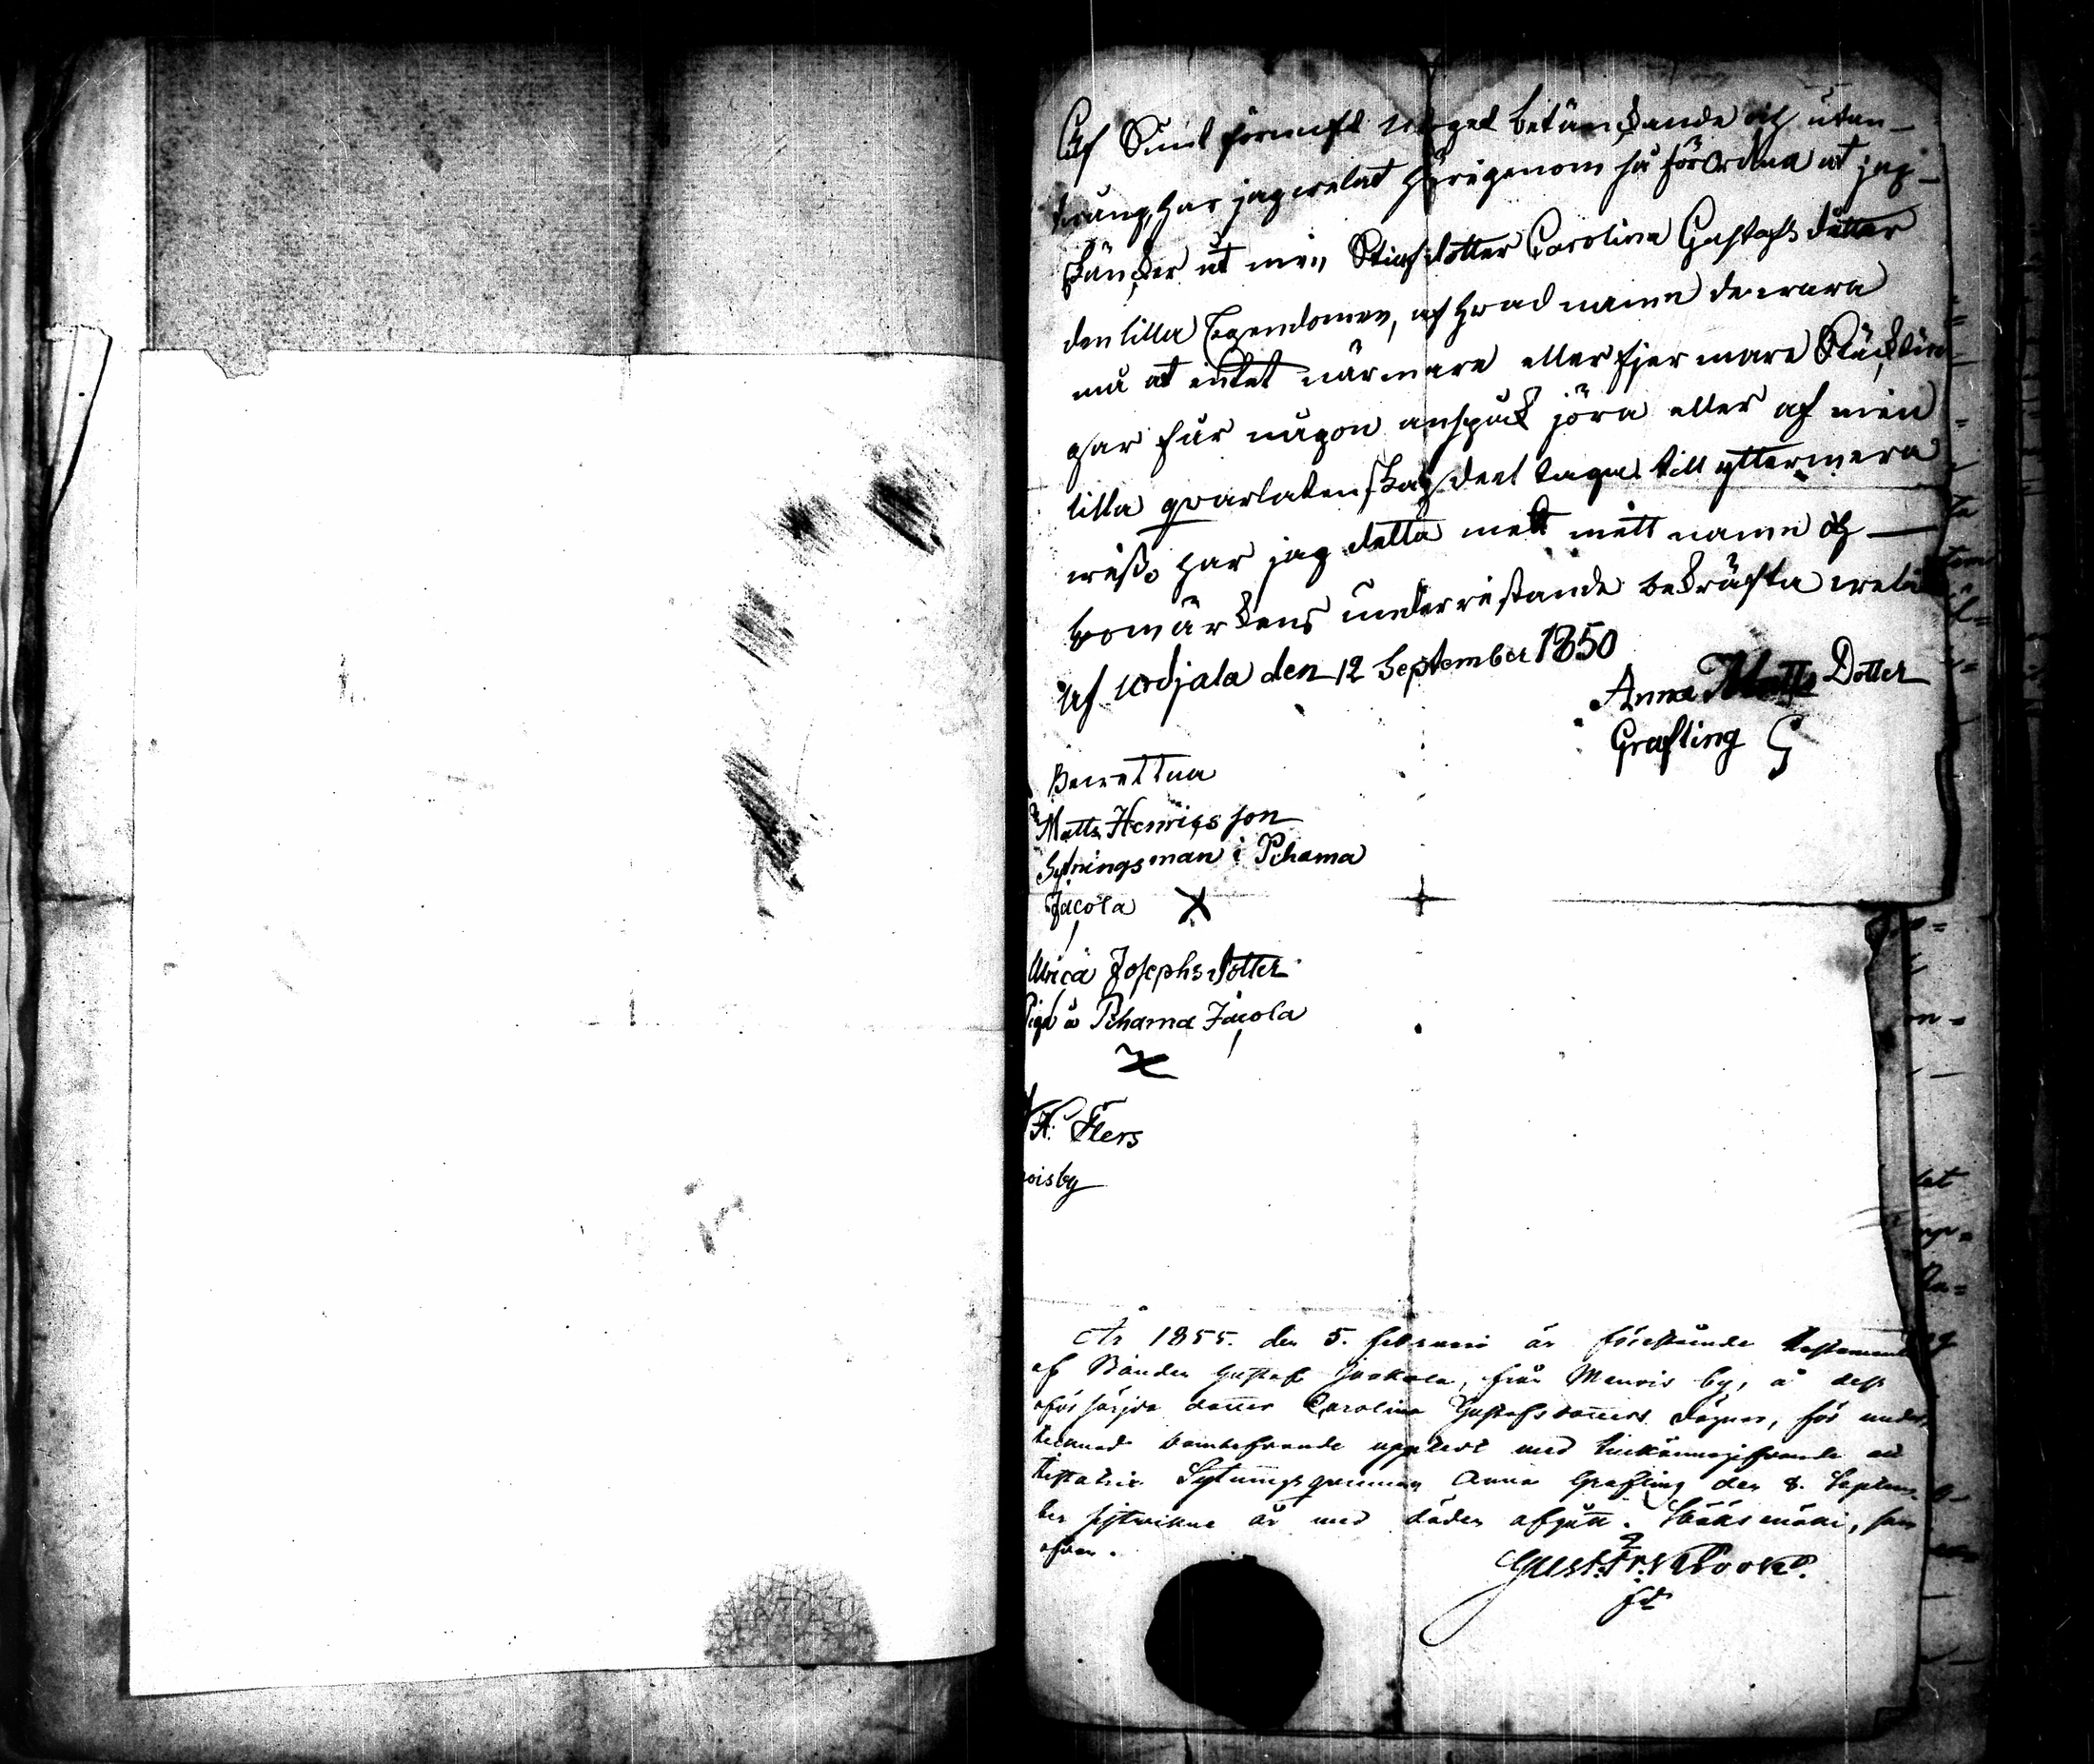 Af Sunt förnuft Moget betänckande och utan
twung, har jag welat Härigenom så förOrdna at jag
skäncker åt min Stiufdotter Carolina Gustafs dotter
den lilla Egendomen, af Hwad namn de wara
må at intet närmare eller fjermare Släcktin
gar får någon anspråk jöra eller af min
lilla qwarlatenskap deel taga till yttermera
wisso Har jag detta mett mitt namn och
bomärkens underristande bekräfta welat
af Urdjala den 12 September 1850
Anna Matts Dotter
Grafting G
Bewittna
Matts Henricsson
Sytningsman i Pehama
Jacola X
Ulrica Josephsdotter
Piga i Pehama Jacola
Flers
oisby
År 1855. den 5. februari är förestående Testamente
af Bonden Gustaf Jaakola, från Menois by, å dess
dotter Carolina Gustafsdotters vägnar, för under
tecknad uppteet med tillkännagifvande att
Testatrix Sytnings qvinnan Anna Grafting den 8. Septem-
ber sistvikne är med döden afgått. som
ofvan.
Gust. Fr.